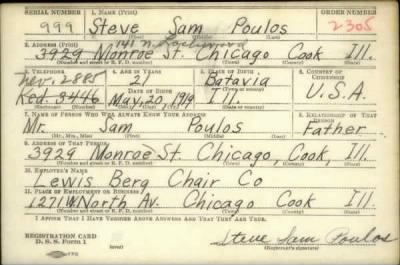 SERIAL NUMBER 1. NAME (Print) ORDER NUMBER
999 Steve Sam Poulos 2305
(First) (Middle) (Last)
2. ADDRESS (Print) 141 N.
3929 Monroe St. Chicago Cook Ill.
(Number and street or R. F. D. number) (Town) (County) (State)
3. TELEPHONE 4. AGE IN YEARS 5. PLACE OF BIRTH 6. COUNTRY OF CITIZENSHIP
Nev. 2885 21 Batavia
Ked. 3446 DATE OF BIRTH (Town or county) U.S.A.
May, 20, 1919 Ill.
(Exchange) (Number) (Mo.) (Day) (Yr.) (State or country)
7. NAME OF PERSON WHO WILL ALWAYS KNOW YOUR ADDRESS 8. RELATIONSHIP OF THAT PERSON
Mr. Sam Poulos Father
(Mr., Mrs., Miss) (First) (Middle) (Last)
9. ADDRESS OF THAT PERSON
3929 Monroe St. Chicago, Cook, Ill.
(Number and street or R. F. D. number) (Town) (County) (State)
10. EMPLOYER'S NAME
Lewis Berg Chair Co
11. PLACE OF EMPLOYMENT OR BUSINESS
1271 W North Av. Chicago Cook Ill.
(Number and street or R. F. D. number) (Town) (County) (State)
I AFFIRM THAT I HAVE VERIFIED ABOVE ANSWERS AND THAT THEY ARE TRUE.
REGISTRATION CARD
D. S. S. Form 1
Steve Sam Poulos
(Registrant's signature)